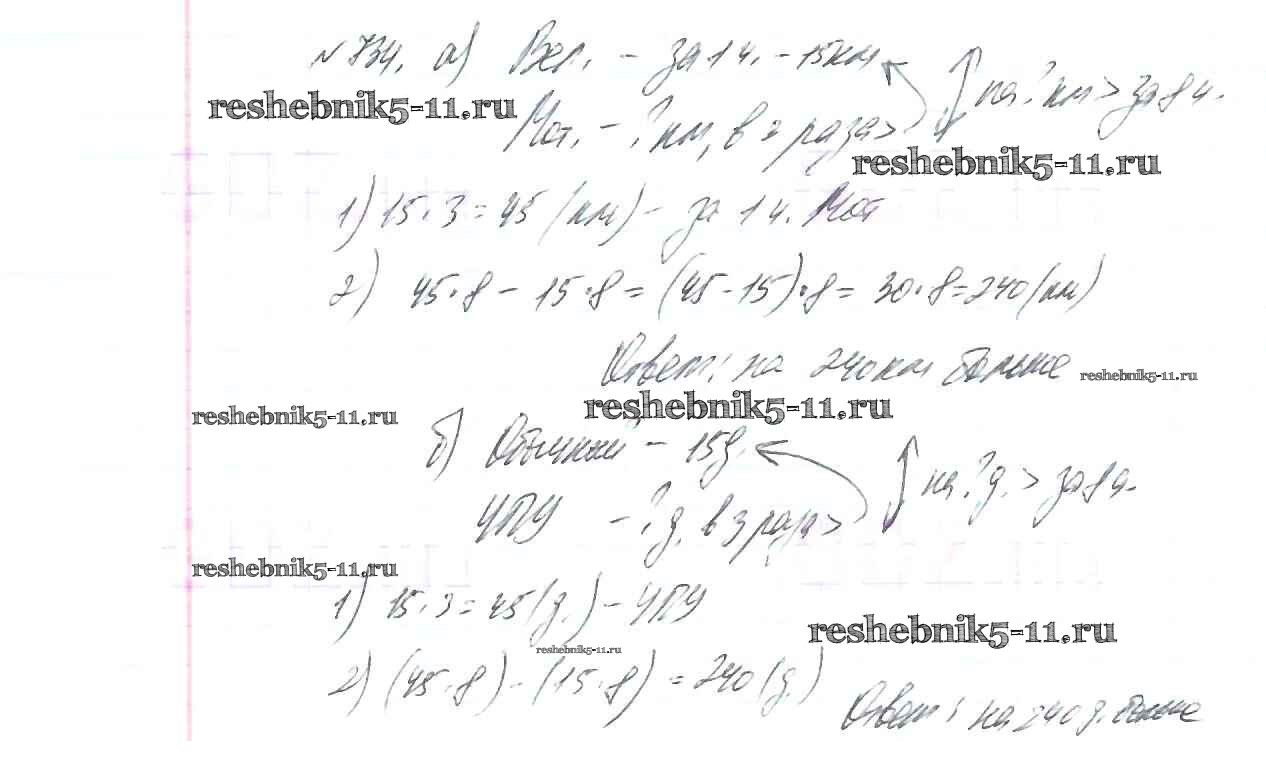 № 734. а) Вел. – за 1 ч. – 15 км
на ? км > за 8 ч.
reshebnik5-11.ru
Мот. – ? км, в 3 раза >
reshebnik5-11.ru
1) 15·3=45 (км) – за 1 ч. Мот
2) 45·8 – 15·8 = (45-15)·8 = 30·8=240 (км)
Ответ: на 240 км больше
reshebnik5-11.ru
reshebnik5-11.ru
reshebnik5-11.ru
б) Обычный – 15 д.
на ? д. > за 8 ч.
ЧПУ – ? д. в 3 раза >
reshebnik5-11.ru
1) 15·3=45 (д.) – ЧПУ
reshebnik5-11.ru
reshebnik5-11.ru
2) (45·8) – (15·8) = 240 (д.)
Ответ: на 240 д. больше